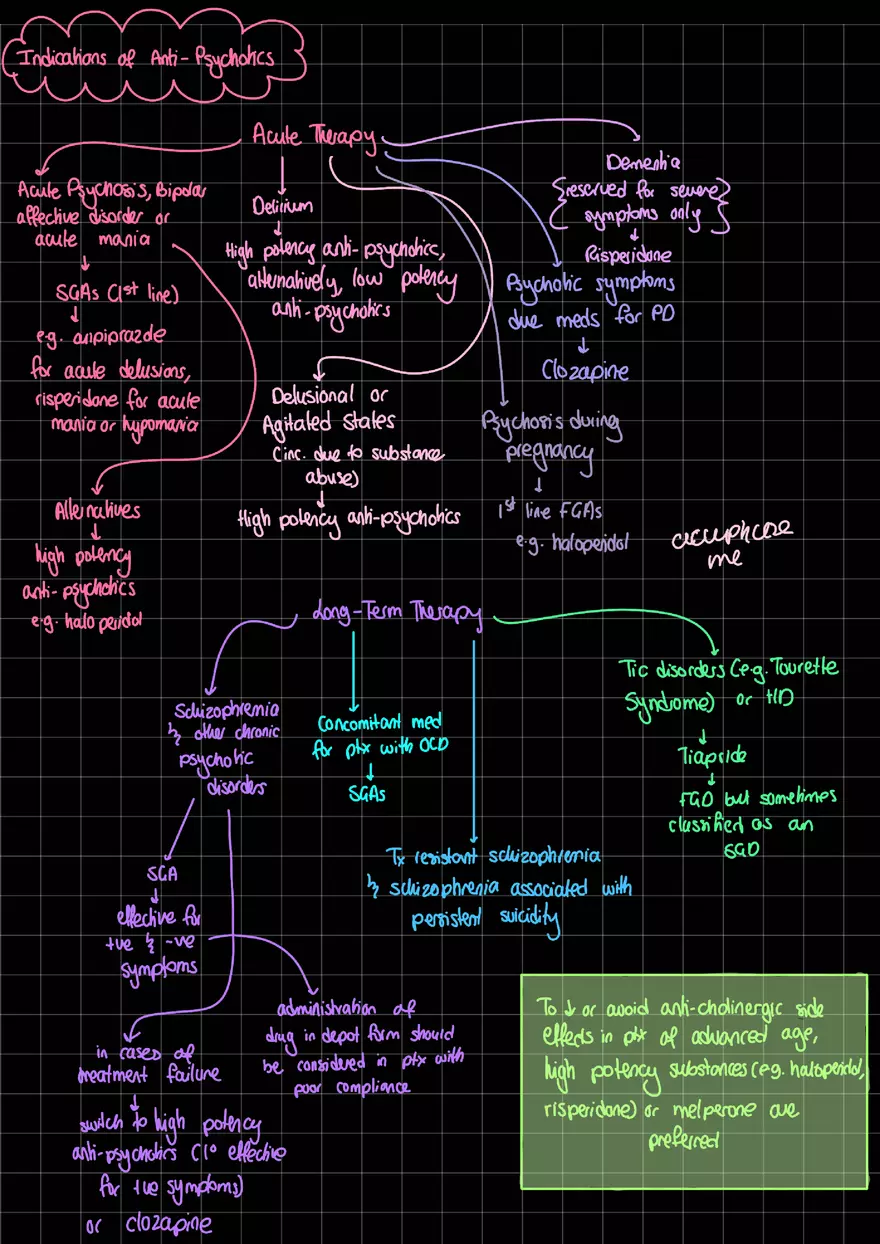 Indications of Anti-Psychotics
Acute Therapy
Acute Psychosis, Bipolar
affective disorder or
acute mania
↓
SGAs (1st line)
↓
e.g. aripiprazole
for acute delusions,
risperidone for acute
mania or hypomania
Alternatives
↓
high potency
anti-psychotics
e.g. haloperidol
Delirium
↓
High potency anti-psychotics,
alternatively, low potency
anti-psychotics
Delusional or
Agitated States
(inc. due to substance
abuse)
↓
High potency anti-psychotics
Dementia
{reserved for severe
symptoms only}
↓
Risperidone
Psychotic symptoms
due meds for PD
↓
Clozapine
Psychosis during
pregnancy
↓
1st line FGAs
e.g. haloperidol
accuphase
me
Long-Term Therapy
Schizophrenia
& other chronic
psychotic
disorders
SGA
↓
effective for
+ve & -ve
symptoms
administration of
drug in depot form should
be considered in ptx with
poor compliance
in cases of
treatment failure
↓
switch to high potency
anti-psychotics (1° effective
for +ve symptoms)
or clozapine
Concomitant med
for ptx with OCD
↓
SGAs
Tx resistant schizophrenia
& schizophrenia associated with
persistent suicidity
Tic disorders (e.g. Tourette
Syndrome) or HD
↓
Tiapride
↓
FGD but sometimes
classified as an
SGD
To ↓ or avoid anti-cholinergic side
effects in ptx of advanced age,
high potency substances (e.g. haloperidol,
risperidone) or melperone are
preferred